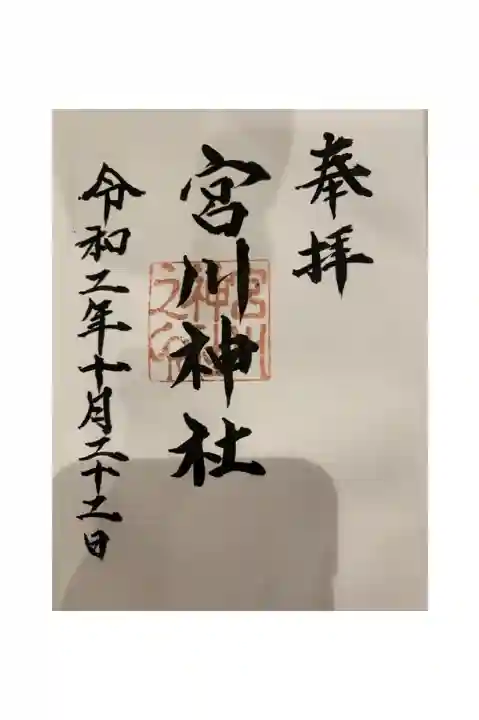 奉拝
宮川神社
宮川神社之印
令和二年十月二十二日